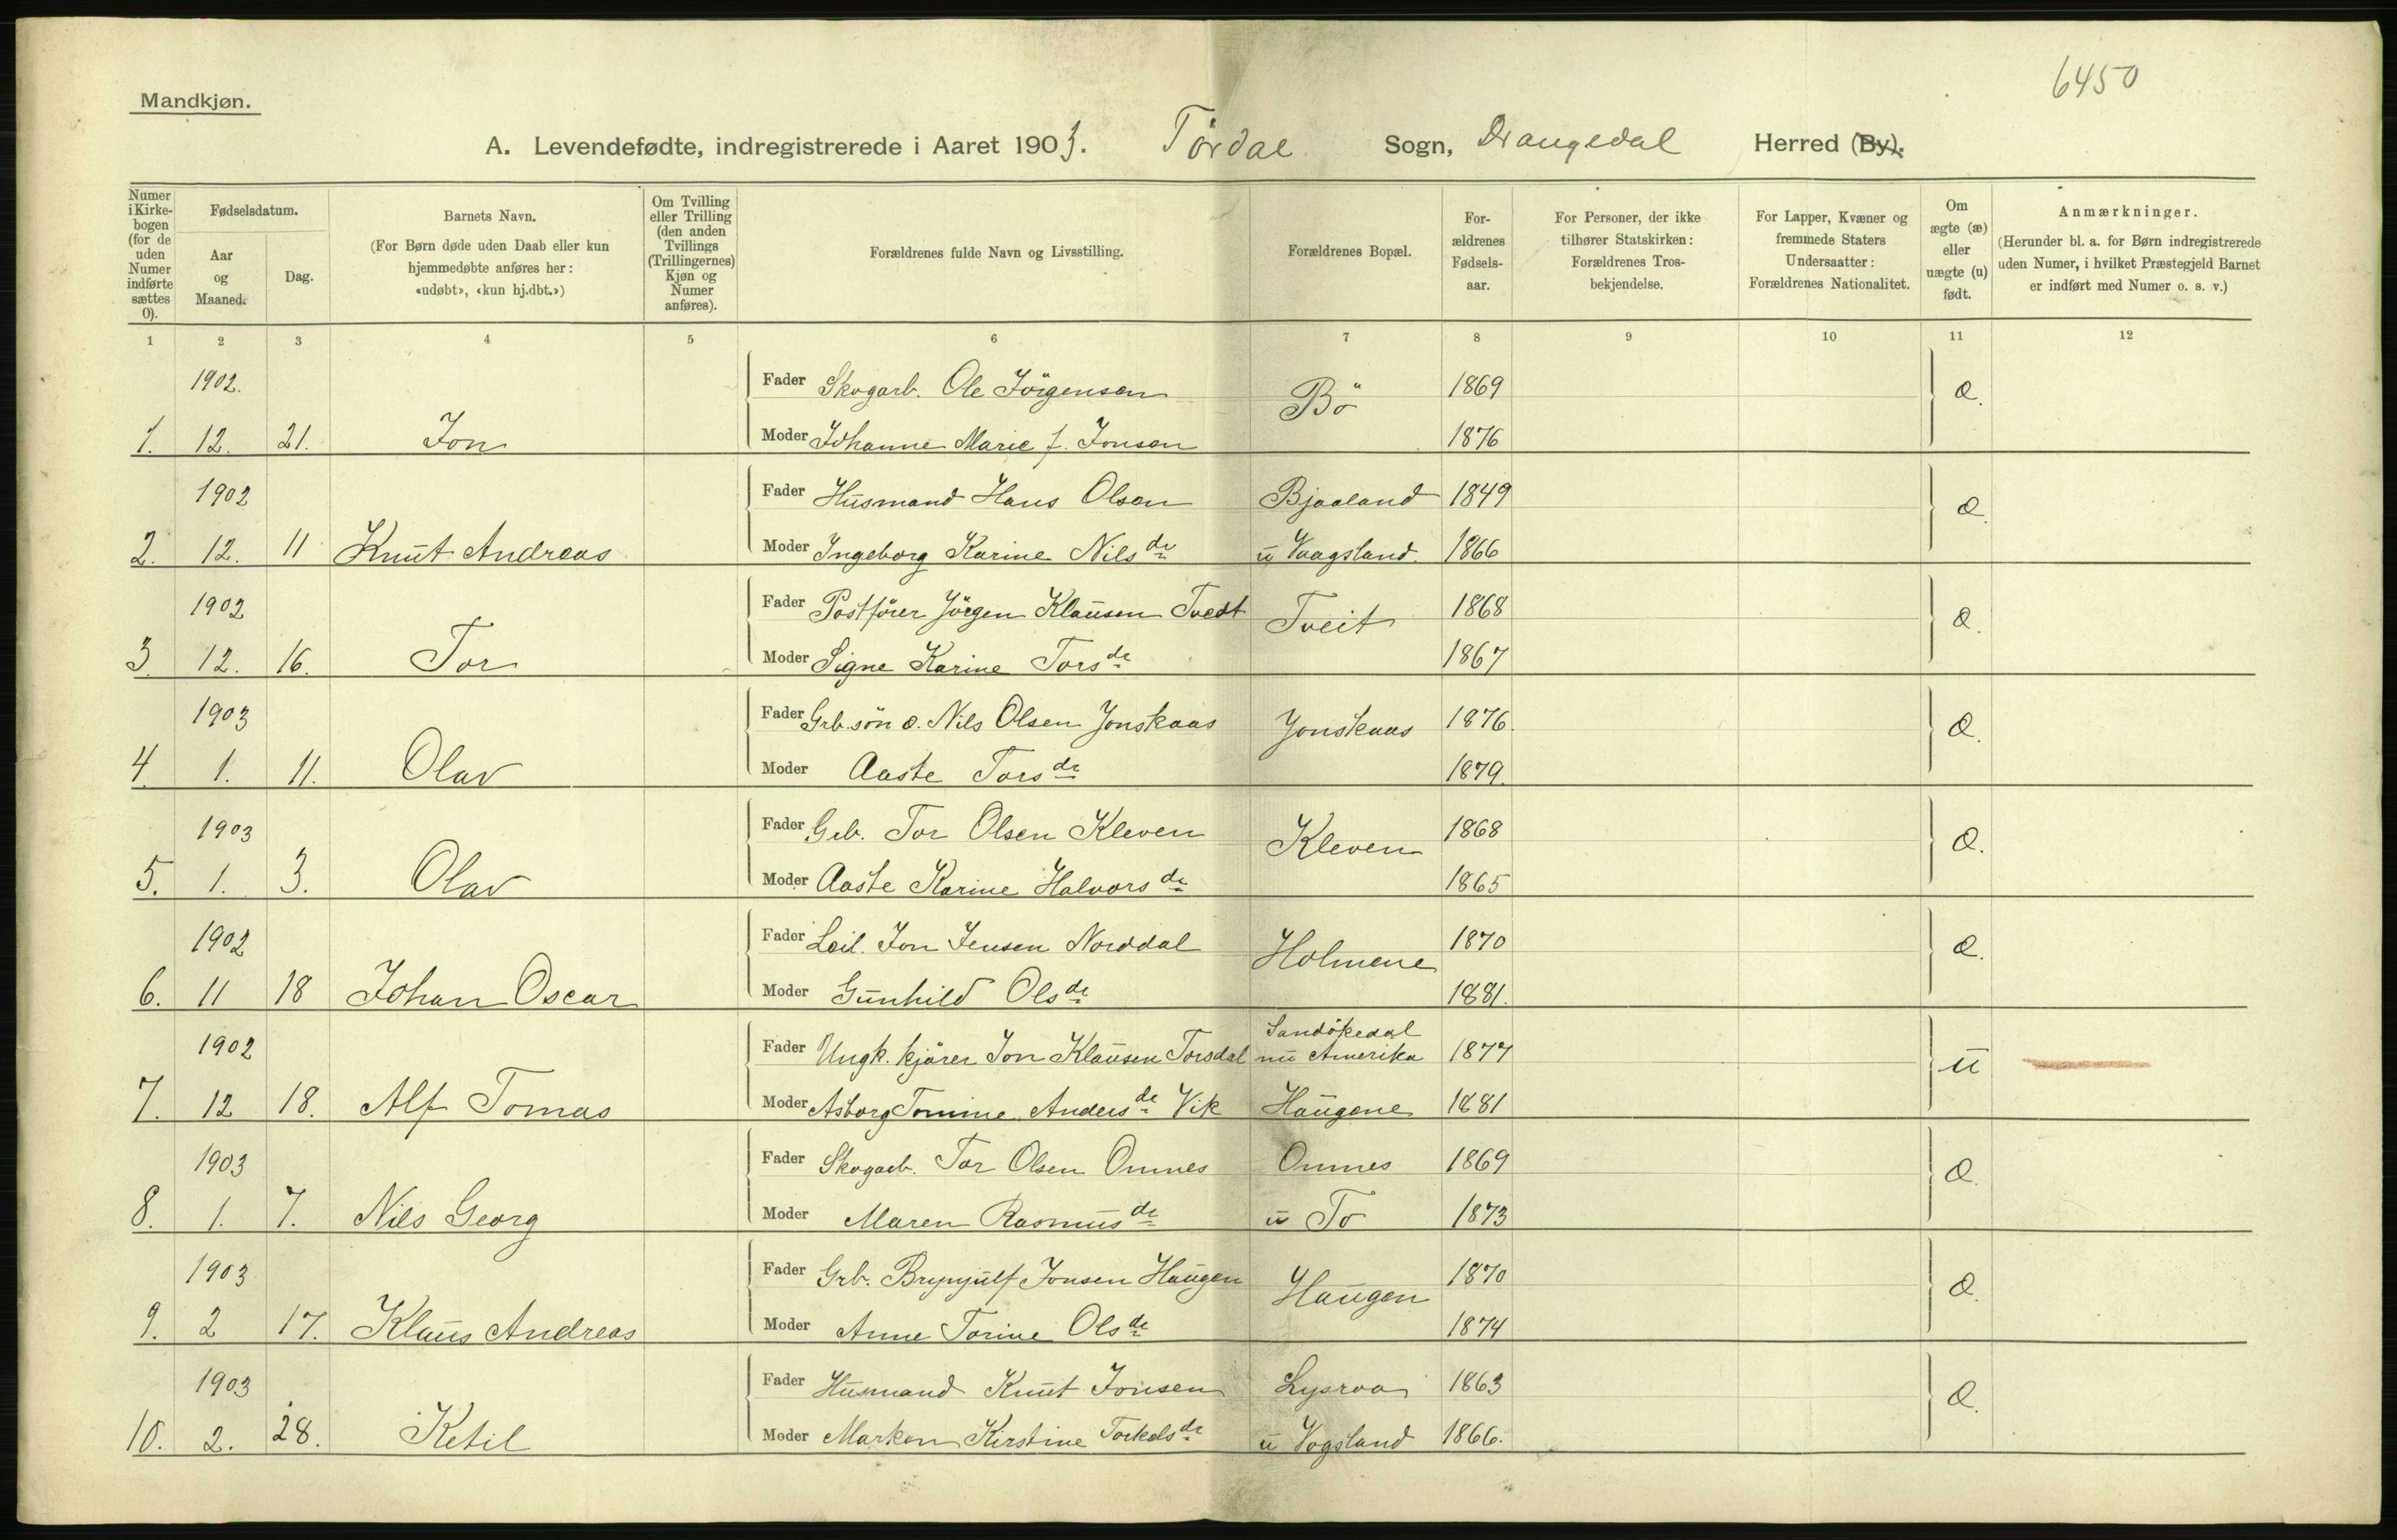 6450
Mandkjøn.
A. Levendefødte, indregistrerede i Aaret 1903. Tørdal Sogn, Drangedal Herred (By).
Numer i Kirke-bogen (for de uden Numer indførte sættes 0).
Fødselsdatum.
Aar og Maaned.
Dag.
Barnets Navn.
(For Børn døde uden Daab eller kun hjemmedøbte anføres her: «udøbt», «kun hj.dbt.»)
Om Tvilling eller Trilling (den anden Tvillings (Trillingernes) Kjøn og Numer anføres).
Forældrenes fulde Navn og Livsstilling.
Forældrenes Bopæl.
For-ældrenes Fødsels-aar.
For Personer, der ikke tilhører Statskirken: Forældrenes Tros-bekjendelse.
For Lapper, Kvæner og fremmede Staters Undersaatter: Forældrenes Nationalitet.
Om ægte (æ) eller uægte (u) født.
Anmærkninger.
(Herunder bl. a. for Børn indregistrerede uden Numer, i hvilket Præstegjeld Barnet er indført med Numer o. s. v.)
1 2 3 4 5 6 7 8 9 10 11 12
1902. Fader Skogarb. Ole Jörgensen Bö 1869 æ.
1. 12. 21. Jon Moder Johanne Marie f. Jonsen 1876
1902 Fader Husmand Hans Olsen Bjaaland 1849 æ.
2. 12. 11 Knut Andreas Moder Ingeborg Karine Nilsdr u Vaagsland. 1866
1902 Fader Postfører Jörgen Klausen Tvedt Tveit 1868 æ.
3. 12. 16. Tor Moder Signe Karine Torsdr 1867
1903 Fader Grb. sön o. Nils Olsen Jonskaas Jonskaas 1876. æ.
4. 1. 11. Olav Moder Aaste Torsdr 1879.
1903 Fader Grb. Tor Olsen Kleven Kleven 1868 æ.
5. 1. 3. Olav Moder Aaste Karine Halvorsdr 1865
1902 Fader Leil. Jon Jensen Norddal Holmene 1870 æ.
6. 11 18 Johan Oscar Moder Gunhild Olsdr 1881.
Sandökedal
1902 Fader Ungk. kjörer Jon Klausen Torsdal nu Amerika 1877 u
7. 12 18. Alf Tomas Moder Asborg Tomine Andersdr Vik Haugene 1881
1903 Fader Skogarb. Tor Olsen Omnes Omnes 1869 æ.
8. 1. 7. Nils Georg Moder Maren Rasmusdr u To 1873
1903 Fader Grb. Brynjulf Jonsen Haugen Haugen 1870 æ.
9. 2 17. Klaus Andreas Moder Anne Torine Olsdr 1874
1903 Fader Husmand Knut Jonsen Lysroa 1863 æ.
10. 2. 28. Ketil Moder Marken Kirstine Torkelsdr u Vogsland 1866.